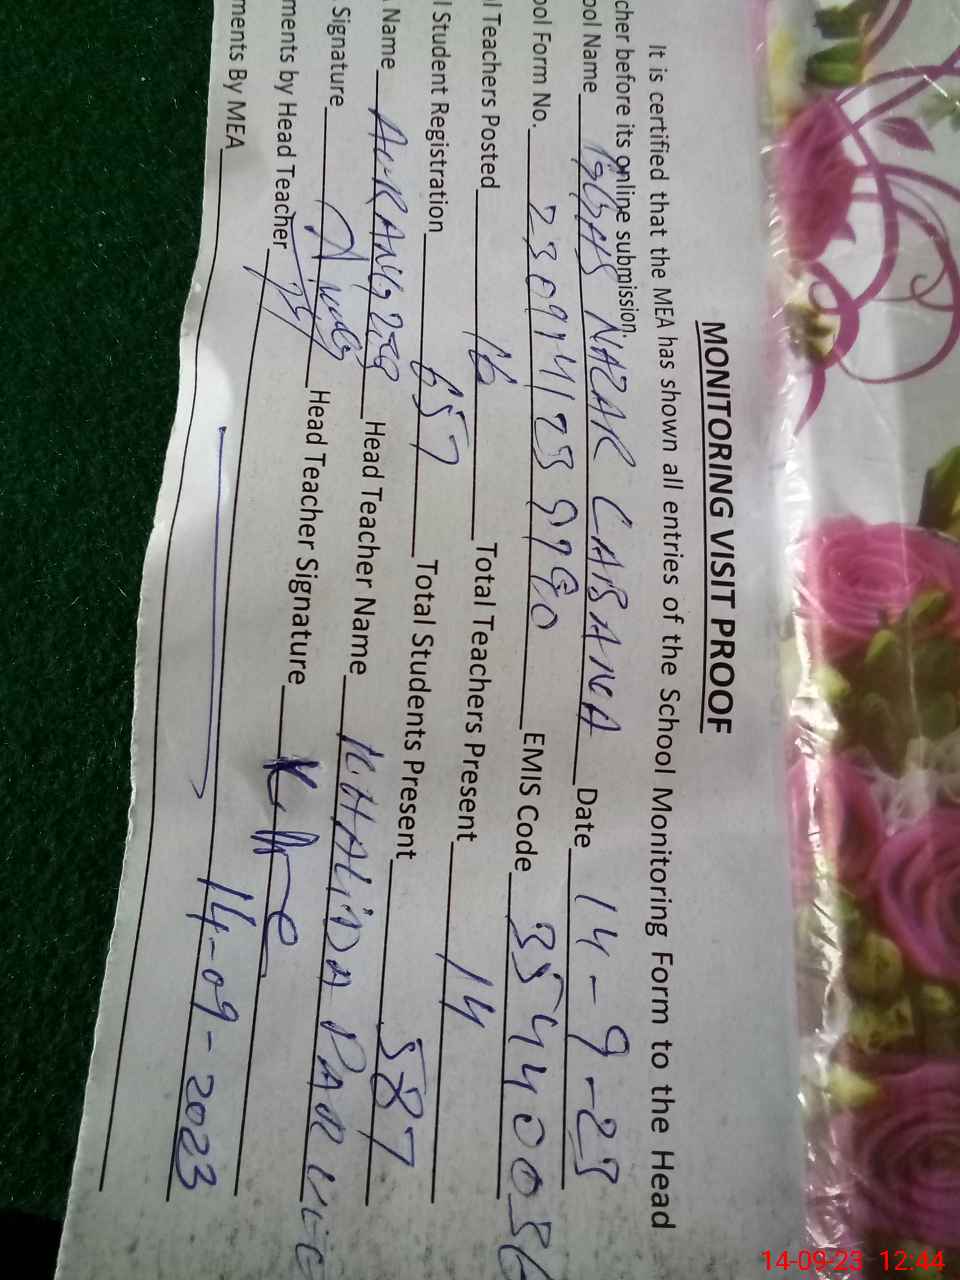 MONITORING VISIT PROOF
It is certified that the MEA has shown all entries of the School Monitoring Form to the Head
cher before its online submission.
ool Name NAZAR LABANA Date 14-9-23
ool Form No. EMIS Code
l Teachers Posted 16 Total Teachers Present 14
l Student Registration 657 Total Students Present 587
Name Head Teacher Name KHALIDA
Signature Head Teacher Signature
ments by Head Teacher
14-09-2023
ments By MEA
14-09-23 12:44